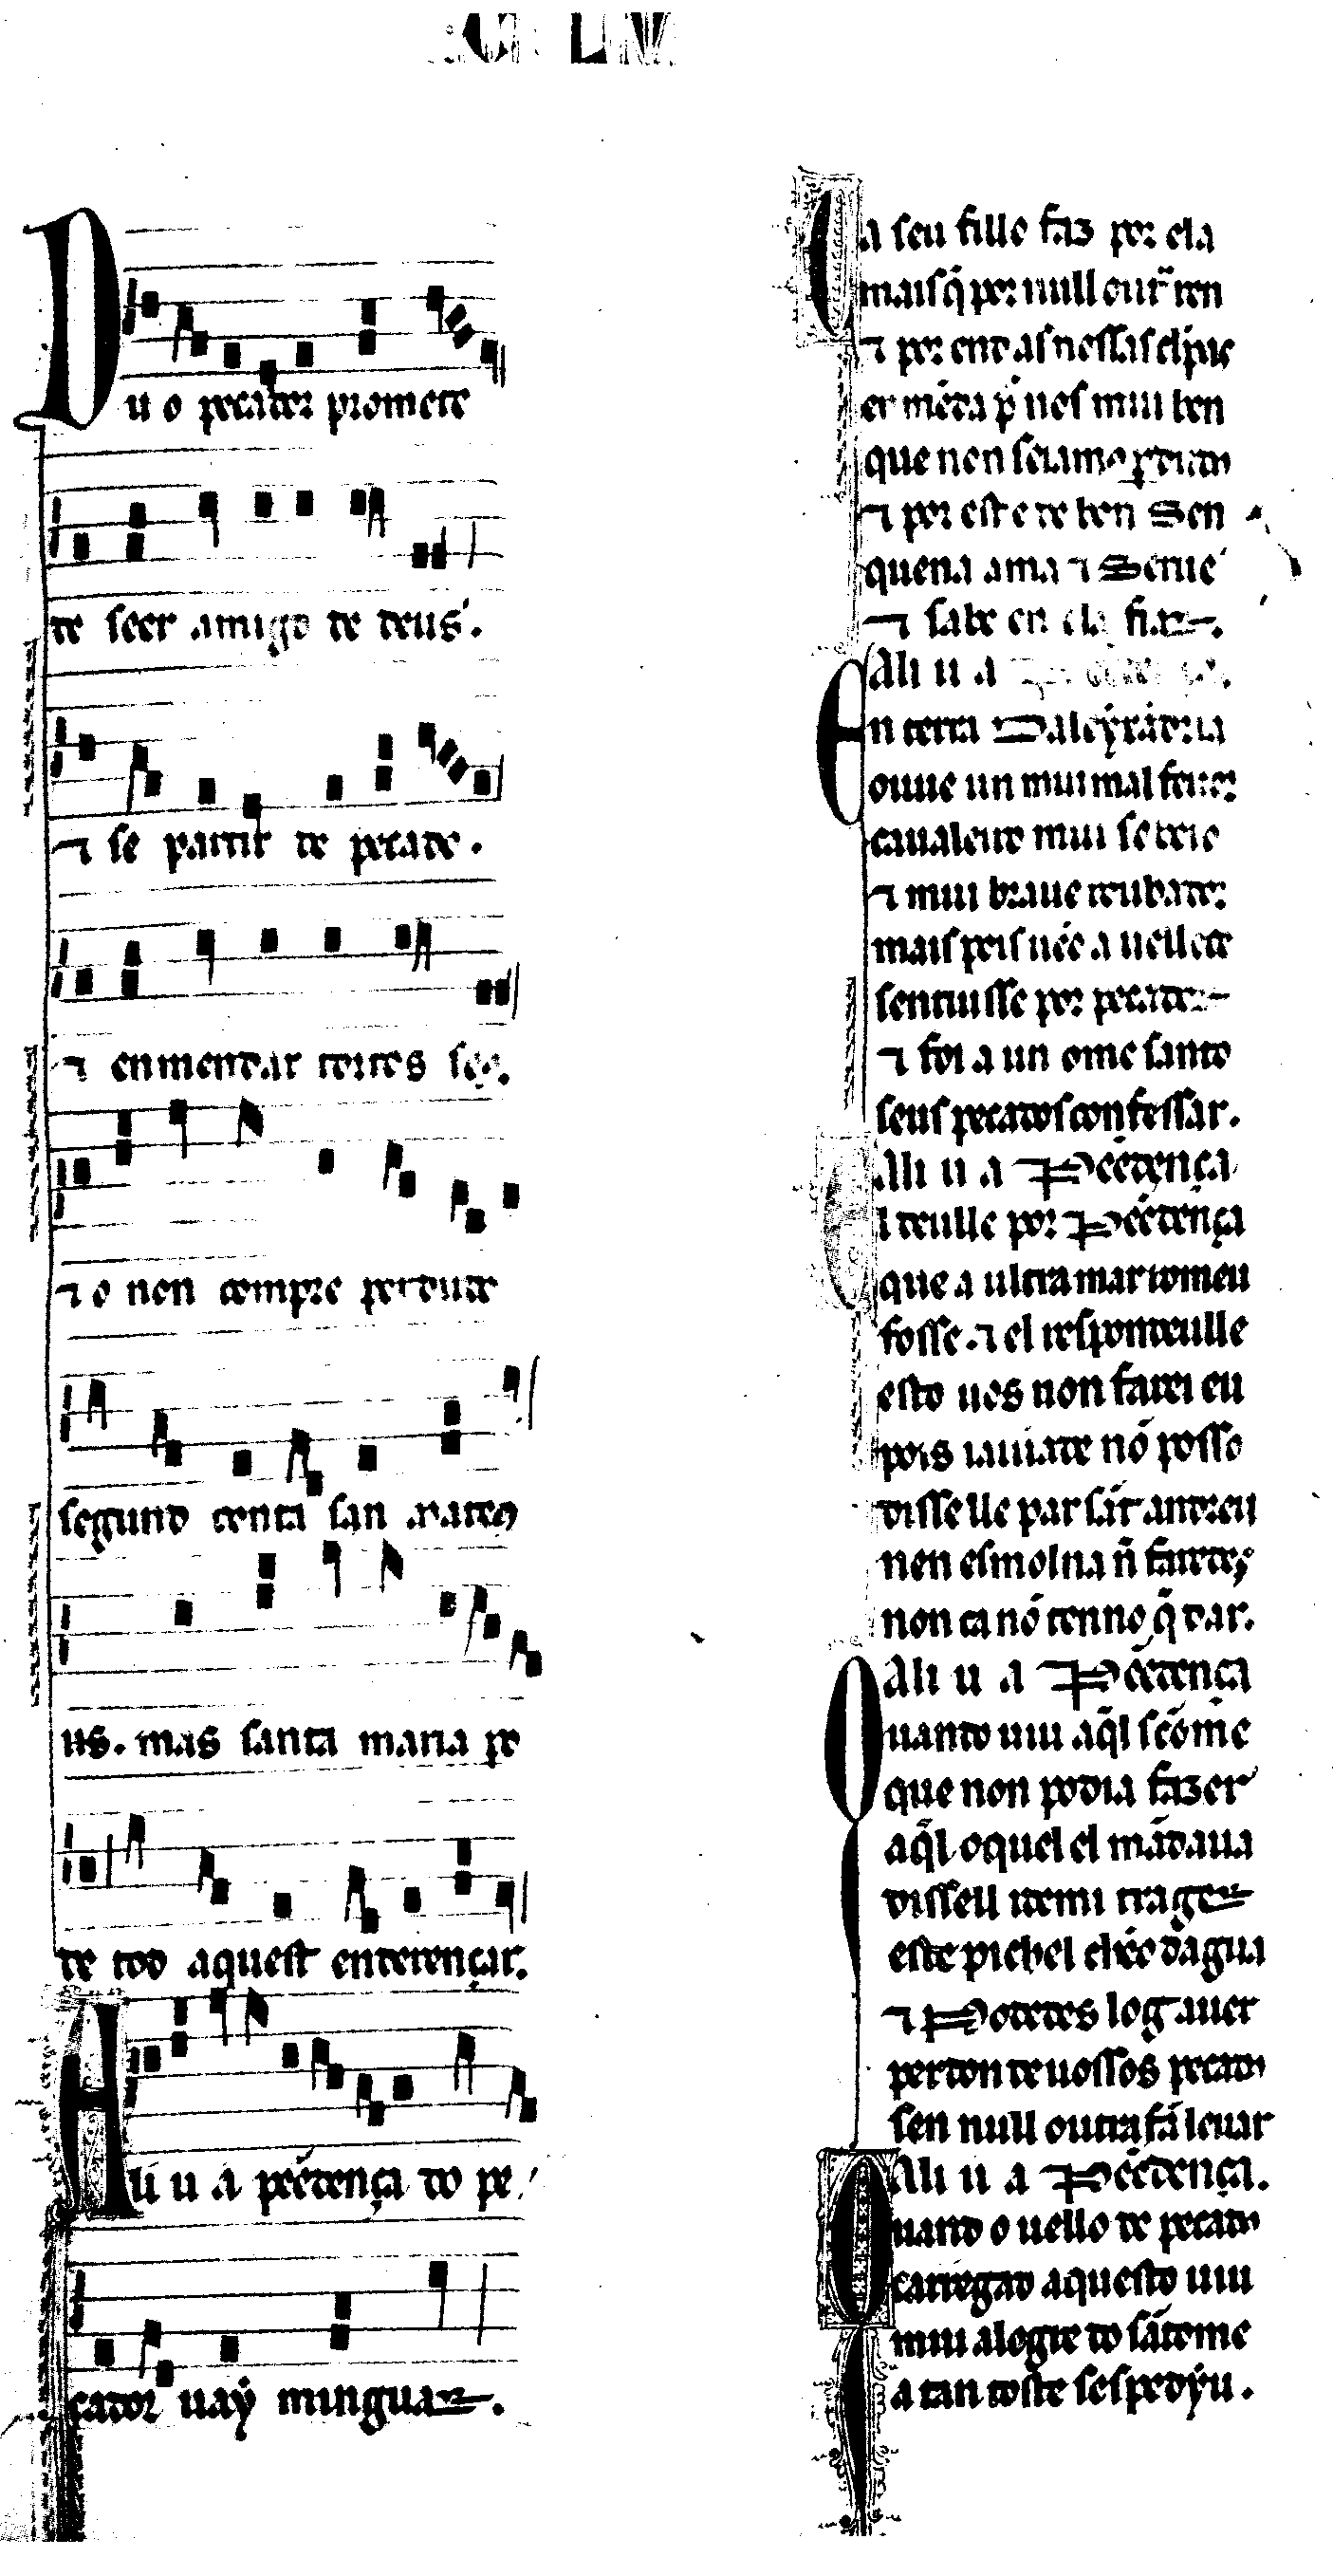 Du o pecador promete
de seer amigo de deus.
⁊ se partir de pecado.
⁊ enmendar tortos
⁊ o non compre perdudo
segund conta san mateo
us. mas santa maria po
de tod aquest enderençar.
Ali u a pẽedença do pe
cador uaỹ minguar.
Ca seu fillo faz por ela
mais q̃ por null outr̃ ren
⁊ por end as nossas
er mẽda pͥ nos mui ben
que non seiamo perdudo
⁊ por est e de bon Sen
quena ama ⁊ Serue
⁊ sabe en ela fiar.
Ali u a
En terra Daleỹxãdria
ouue un mui mal feitor
caualeiro mui soberio
⁊ mui brauo roubador
mais pois uẽo a uellece
sentiusse por pecador
⁊ foi a un ome santo
seus pecados confessar.
Ali u a Pẽedença
El deulle por Pẽedença
que a ultramar romeu
fosse. ⁊ el respondeulle
esto uos non farei eu
pois iaiũar nõ posso
disselle par sãt andreu
nen esmolna ñ farede
non ca nõ tenno q̃ dar.
Ali u a Pẽedença
Quando uiu aq̃l sã ome
que non podia fazer
aq̃l o quel el mãdaua
dissell idemi trager
este pichel chẽo dagua
⁊ Podedes log auer
perdon de uossos pecados
sen null outra fã leuar
Ali u a Pẽedença.
Quand o uello de pecados
carregad aquesto uiu
mui alogre do sãtome
a tan toste sespedỹu.